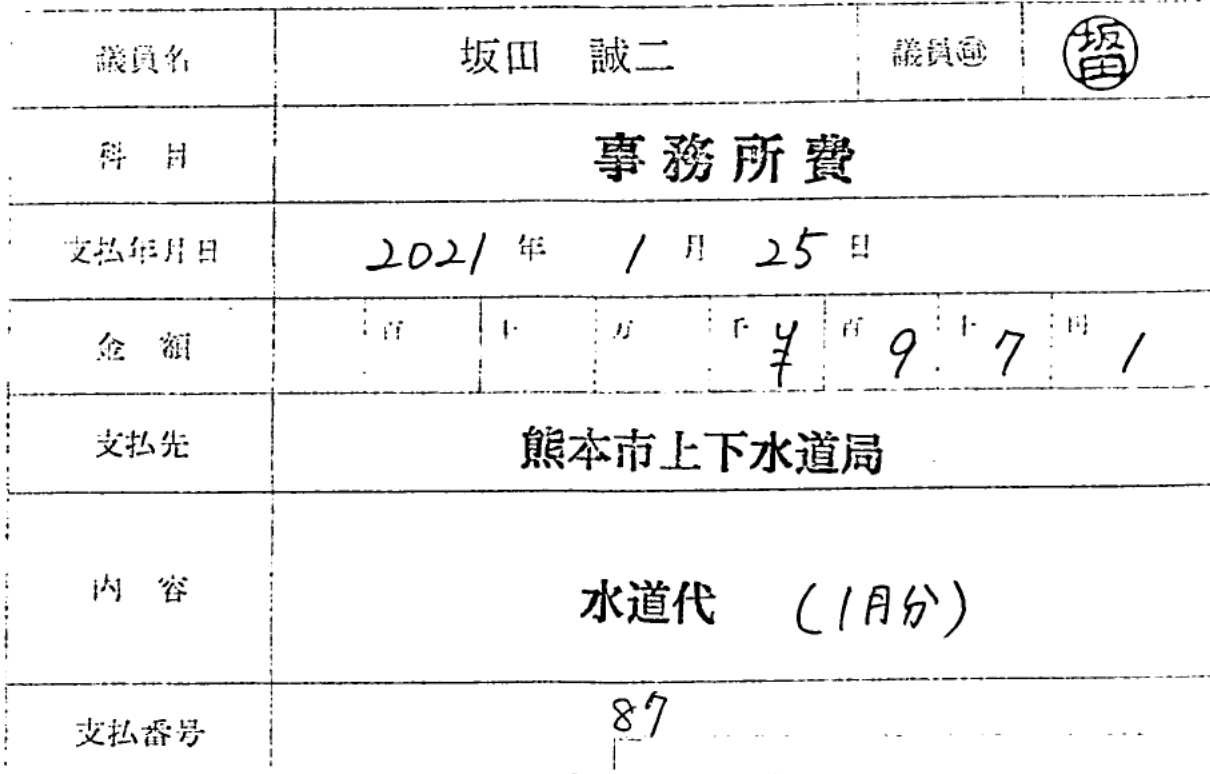 議員名 坂田 誠二 議員㊞ 坂田
科 目 事務所費
支払年月日 2021 年 1 月 25 日
金 額 百 十 万 千 ¥ 百 9 十 7 円 1
支払先 熊本市上下水道局
内 容 水道代 (1月分)
支払番号 87